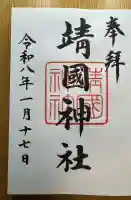 奉拝
靖國神社
令和八年一月十七日
靖國神社